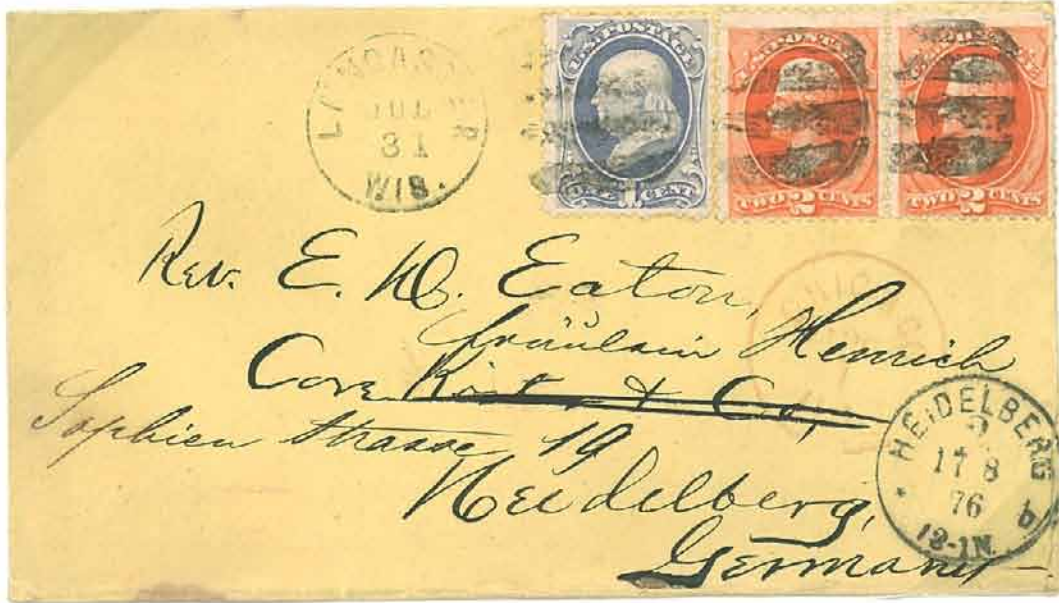 LANCASTER
JUL
31
WIS.
U.S. POSTAGE
ONE 1 CENT
U.S. POSTAGE
TWO 2 CENTS
U.S. POSTAGE
TWO 2 CENTS
Rev. E. D. Eaton,
Fräulein Henrich
Care & Co,
Sophien Strasse 19
Heidelberg,
Germany
CHICAGO
HEIDELBERG
17 8
76
12-1N.
b